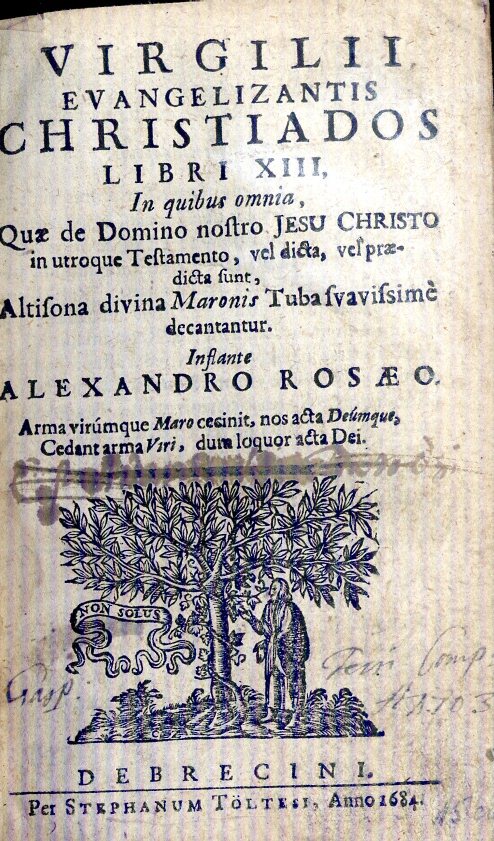 VIRGILII
EVANGELIZANTIS
CHRISTIADOS
LIBRI XIII,
In quibus omnia,
Quæ de Domino noſtro JESU CHRISTO
in utroque Teſtamento, vel dicta, vel præ-
dicta ſunt,
Altiſona divina Maronis Tuba ſvaviſſimè
decantantur.
Inflante
ALEXANDRO ROSÆO.
Arma virúmque Maro cecinit, nos acta Deúmque,
Cedant arma Viri, dum loquor acta Dei.
NON SOLUS
Gasp.
DEBRECINI.
Per STEPHANUM TÖLTESI, Anno 1684.